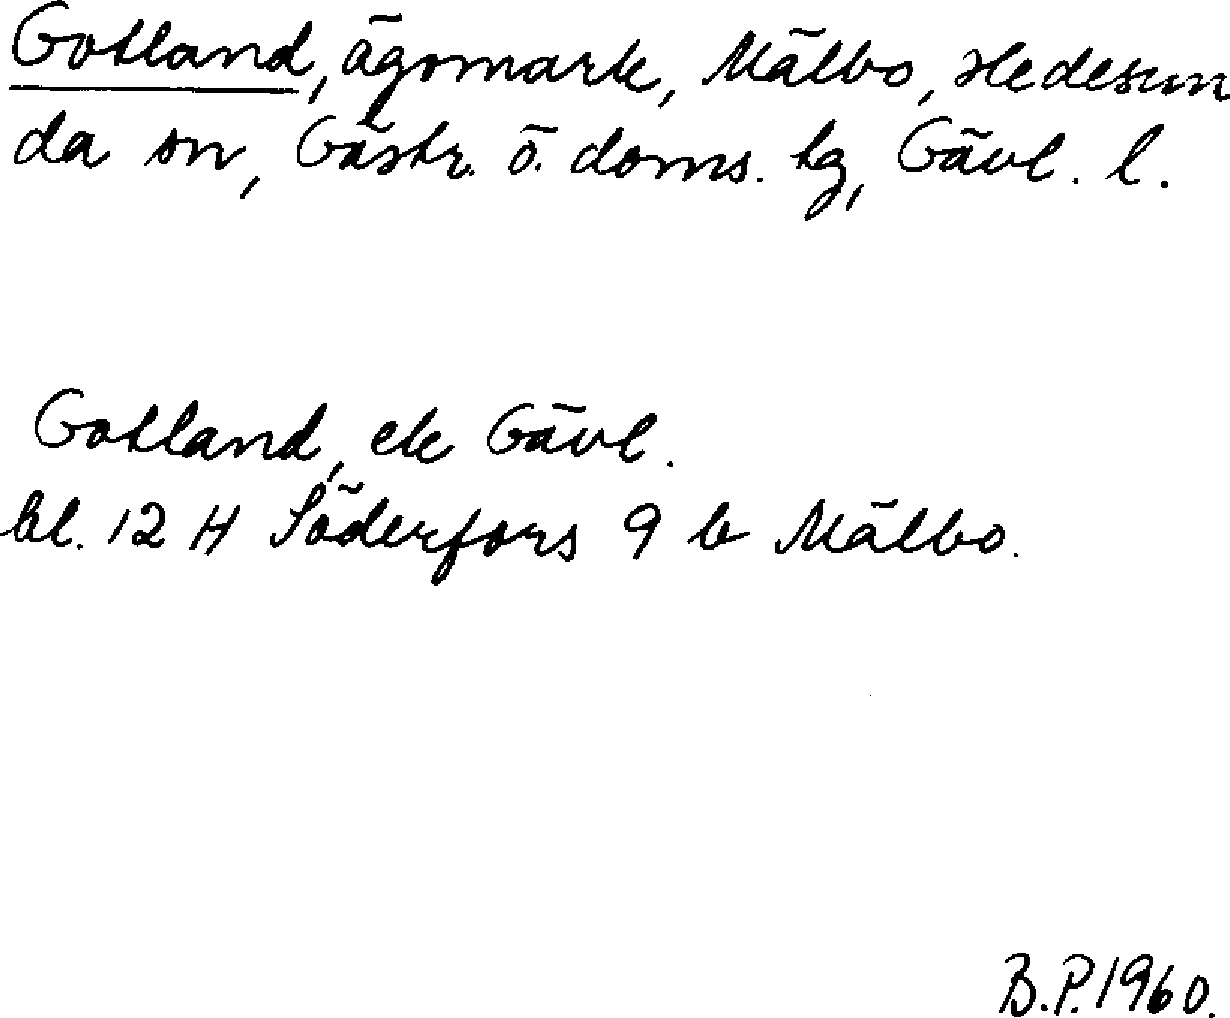 Gotland, ägomark, Mälbo, Hedesun
da sn, Gästr. ö. doms. tg, Gävl. l.
Gotland, ek Gävl.
bl. 12 H Söderfors 9 b Mälbo.
B.P. 1960.